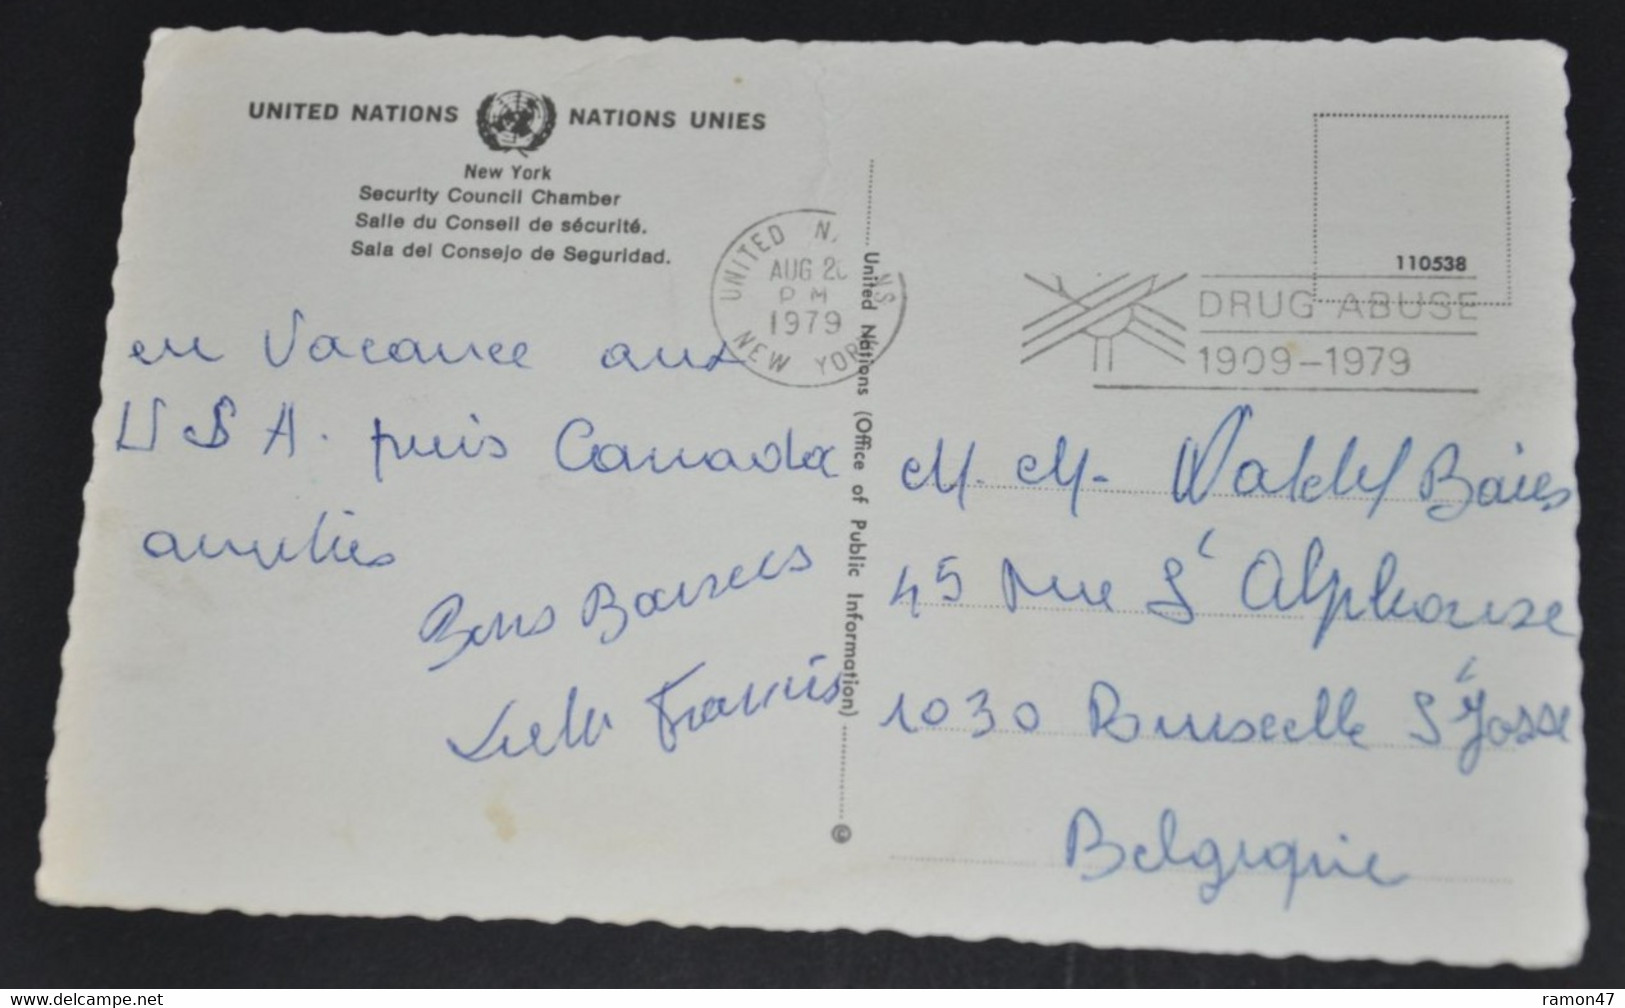 UNITED NATIONS NATIONS UNIES
New York
Security Council Chamber
Salle du Conseil de sécurité.
Sala del Consejo de Seguridad.
en Vacance aux
USA. puis Canada
amitiés
Bons Baisers
Francis
UNITED NEW YORK
AUG
PM
1979
United Nations (Office of Public Information) ©
110538
DRUG ABUSE
1909-1979
M. M.
45 Rue St Alphonse
1030 Bruxelle St Josse
Belgique
delcampe.net
ramon47